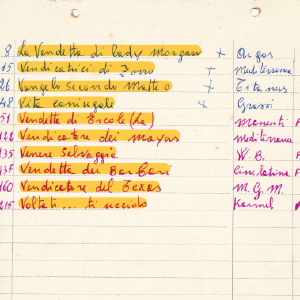 8 La Vendetta di lady Morgan + Orgos
15 Vendicatrici di Zorro + Mediterranea
26 Vangelo secondo Matteo + Titanus
48 Vita coniugale x Grassi
51 Vendetta di Ercole (La) Monenti F
122 Vendicatore dei mayas Mediterranea
135 Venere Selvaggia W. B. F
137 Vendetta dei Barbari Cine latina F
160 Vendicatore del Texas M. G. M.
215 Voltati .... ti uccido Karmel F